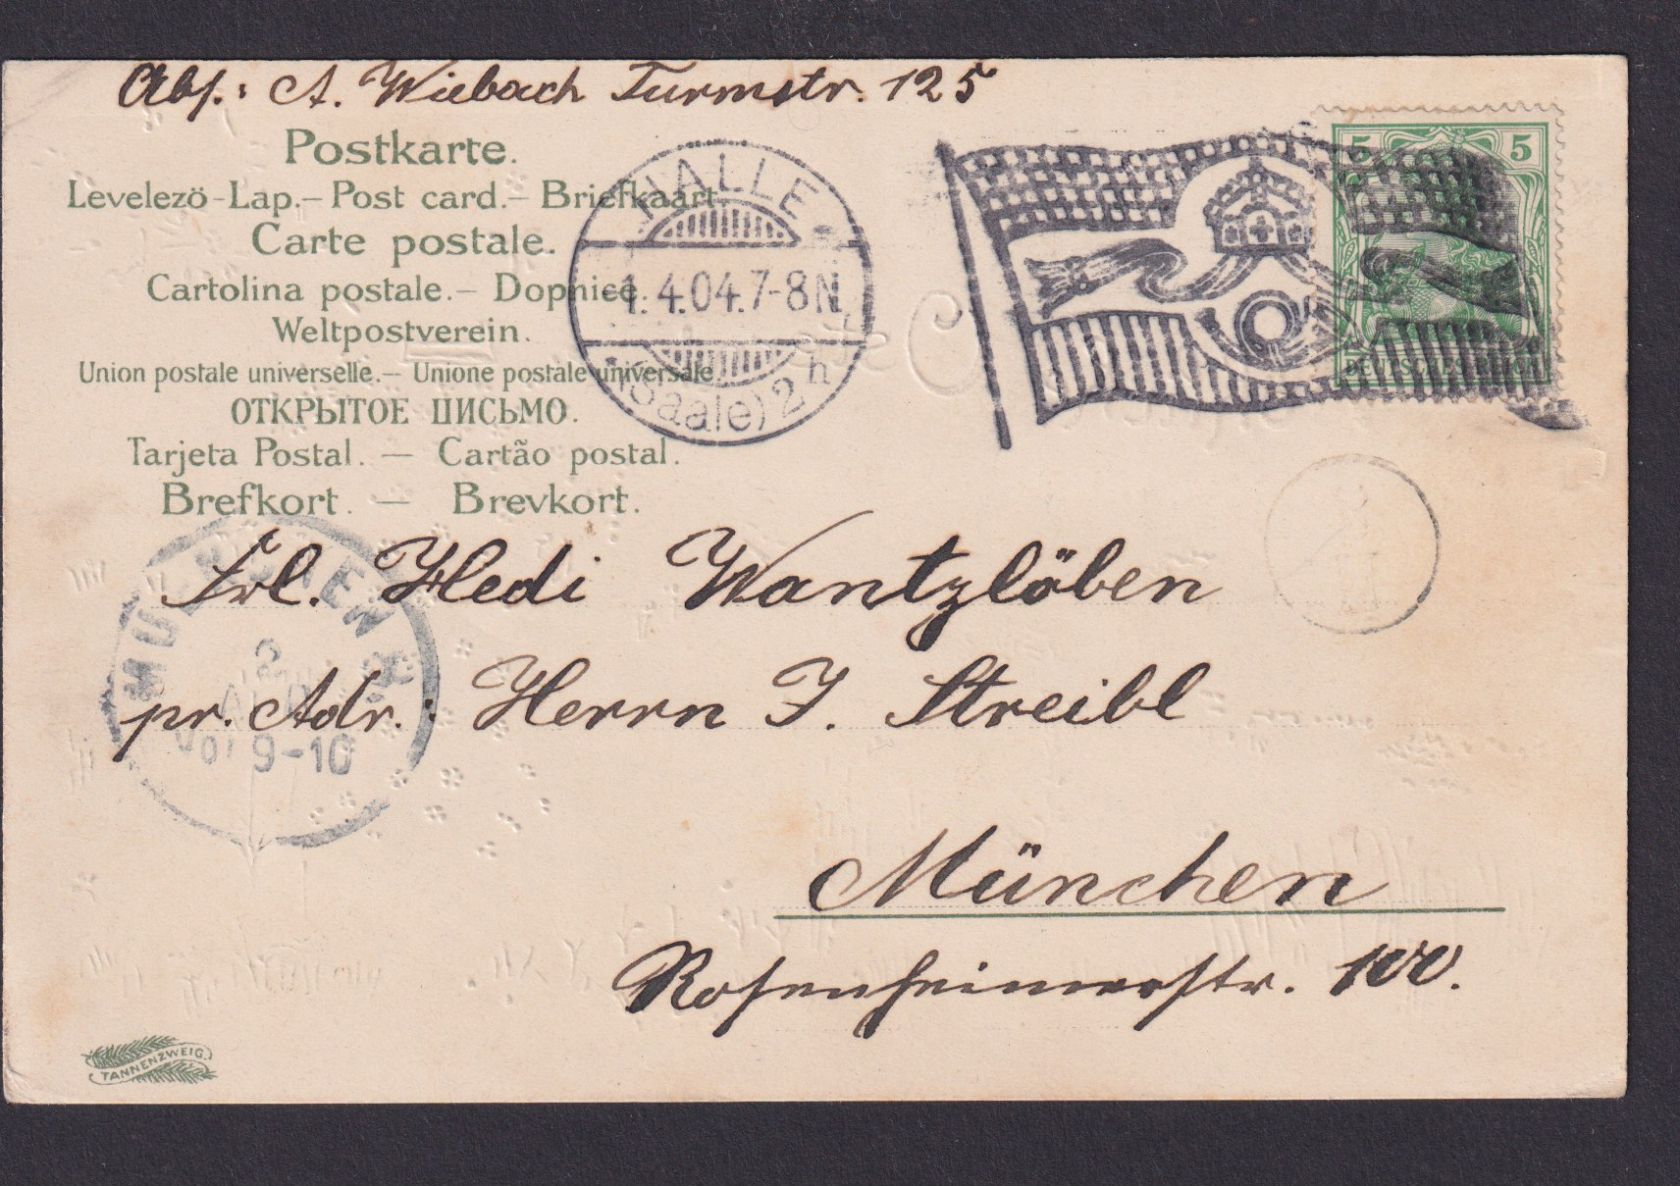 Abs.: A. Wiebach Turmstr. 125
Postkarte.
Levelezö-Lap.– Post card.– Briefkaart.
Carte postale.
Cartolina postale.– Dopnice.
Weltpostverein.
Union postale universelle.– Unione postale universale.
ОТКРЫТОЕ ПИСЬМО.
Tarjeta Postal. – Cartão postal.
Brefkort. – Brevkort.
HALLE
1.4.04.7-8N.
(Saale) 2 h
5 5
DEUTSCHES REICH
Frl. Hedi Wantzlöben
pr. Adr.: Herrn J. Streibl
München
Rosenheimerstr. 100.
MUENCHEN
2
APR
Vor 9-10
TANNENZWEIG.